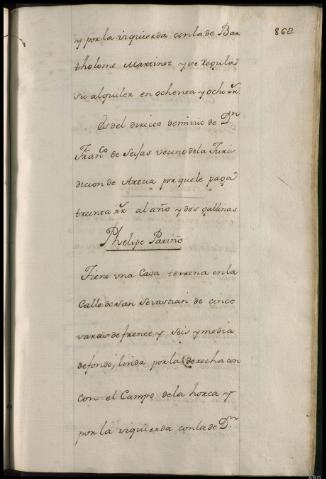 862
y por la izquierda con la de Bar
tholome Martinez y se regula
su alquiler en ochenta y ocho rr.
Es del directo dominio de Dn
Franco de Seijas vecino de la Juris
diccion de por que le paga
treinta rr al año y dos gallinas
Phelipe Pariño
Tiene una Casa terrena en la
Calle de San Sevastian de cinco
varas de frente y seis y media
de fondo, linda por la derecha con
con el Campo de la horca y
por la izquierda con la de Dn